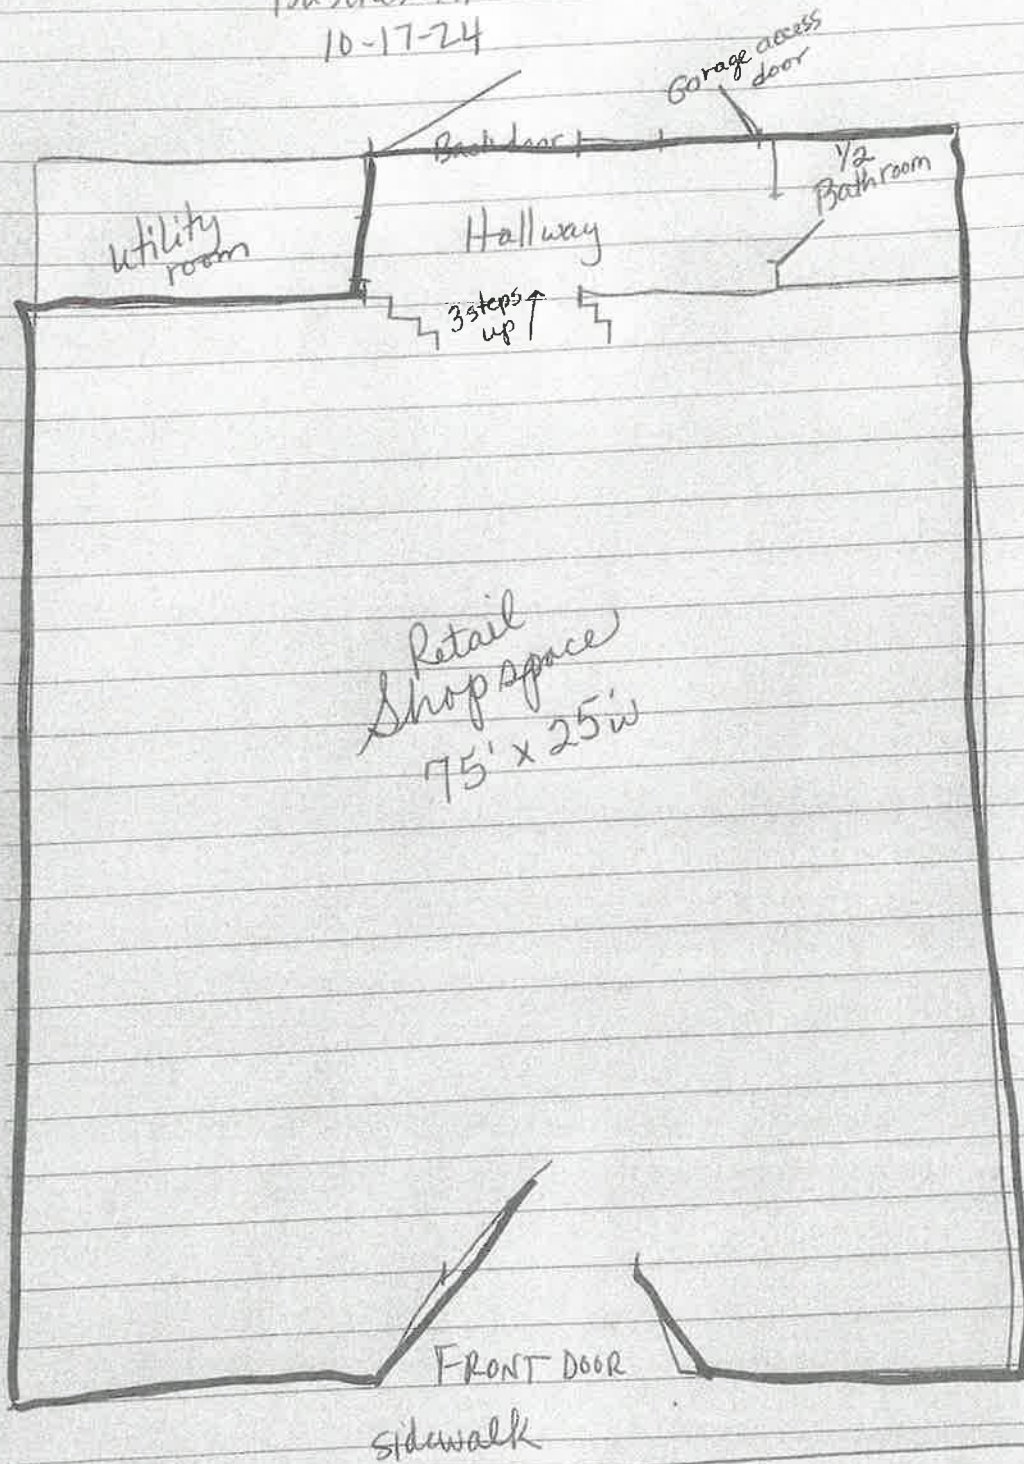 10-17-24
Garage access
door
Back door
1/2
Bathroom
Utility
room
Hallway
3 steps
up
Retail
Shop space
75' x 25'w
FRONT DOOR
sidewalk